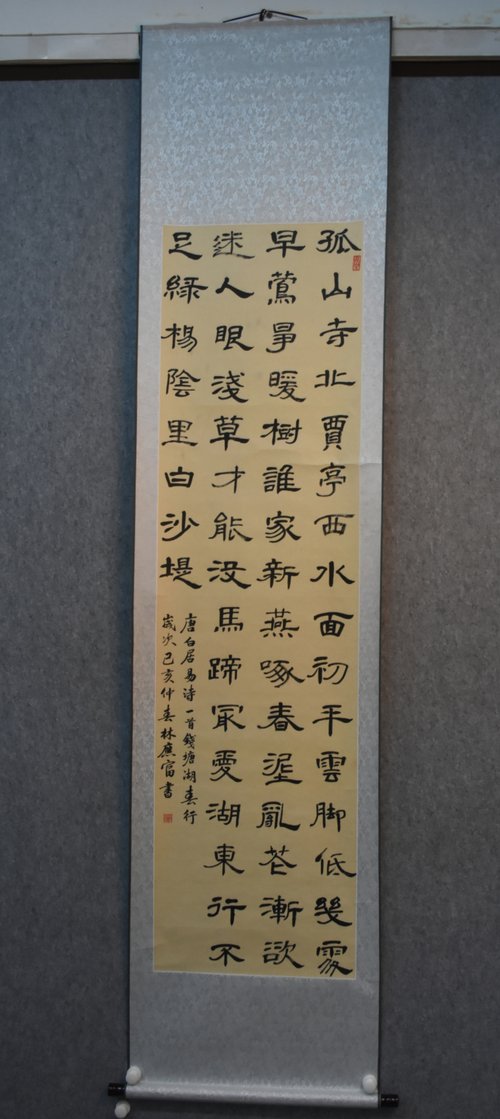 孤山寺北賈亭西水面初平雲脚低幾處
早鶯爭暖樹誰家新燕啄春泥亂花漸欲
迷人眼淺草才能没馬蹄最愛湖東行不
足綠楊陰里白沙堤
唐白居易诗一首錢塘湖春行
歲次己亥仲春林應富書